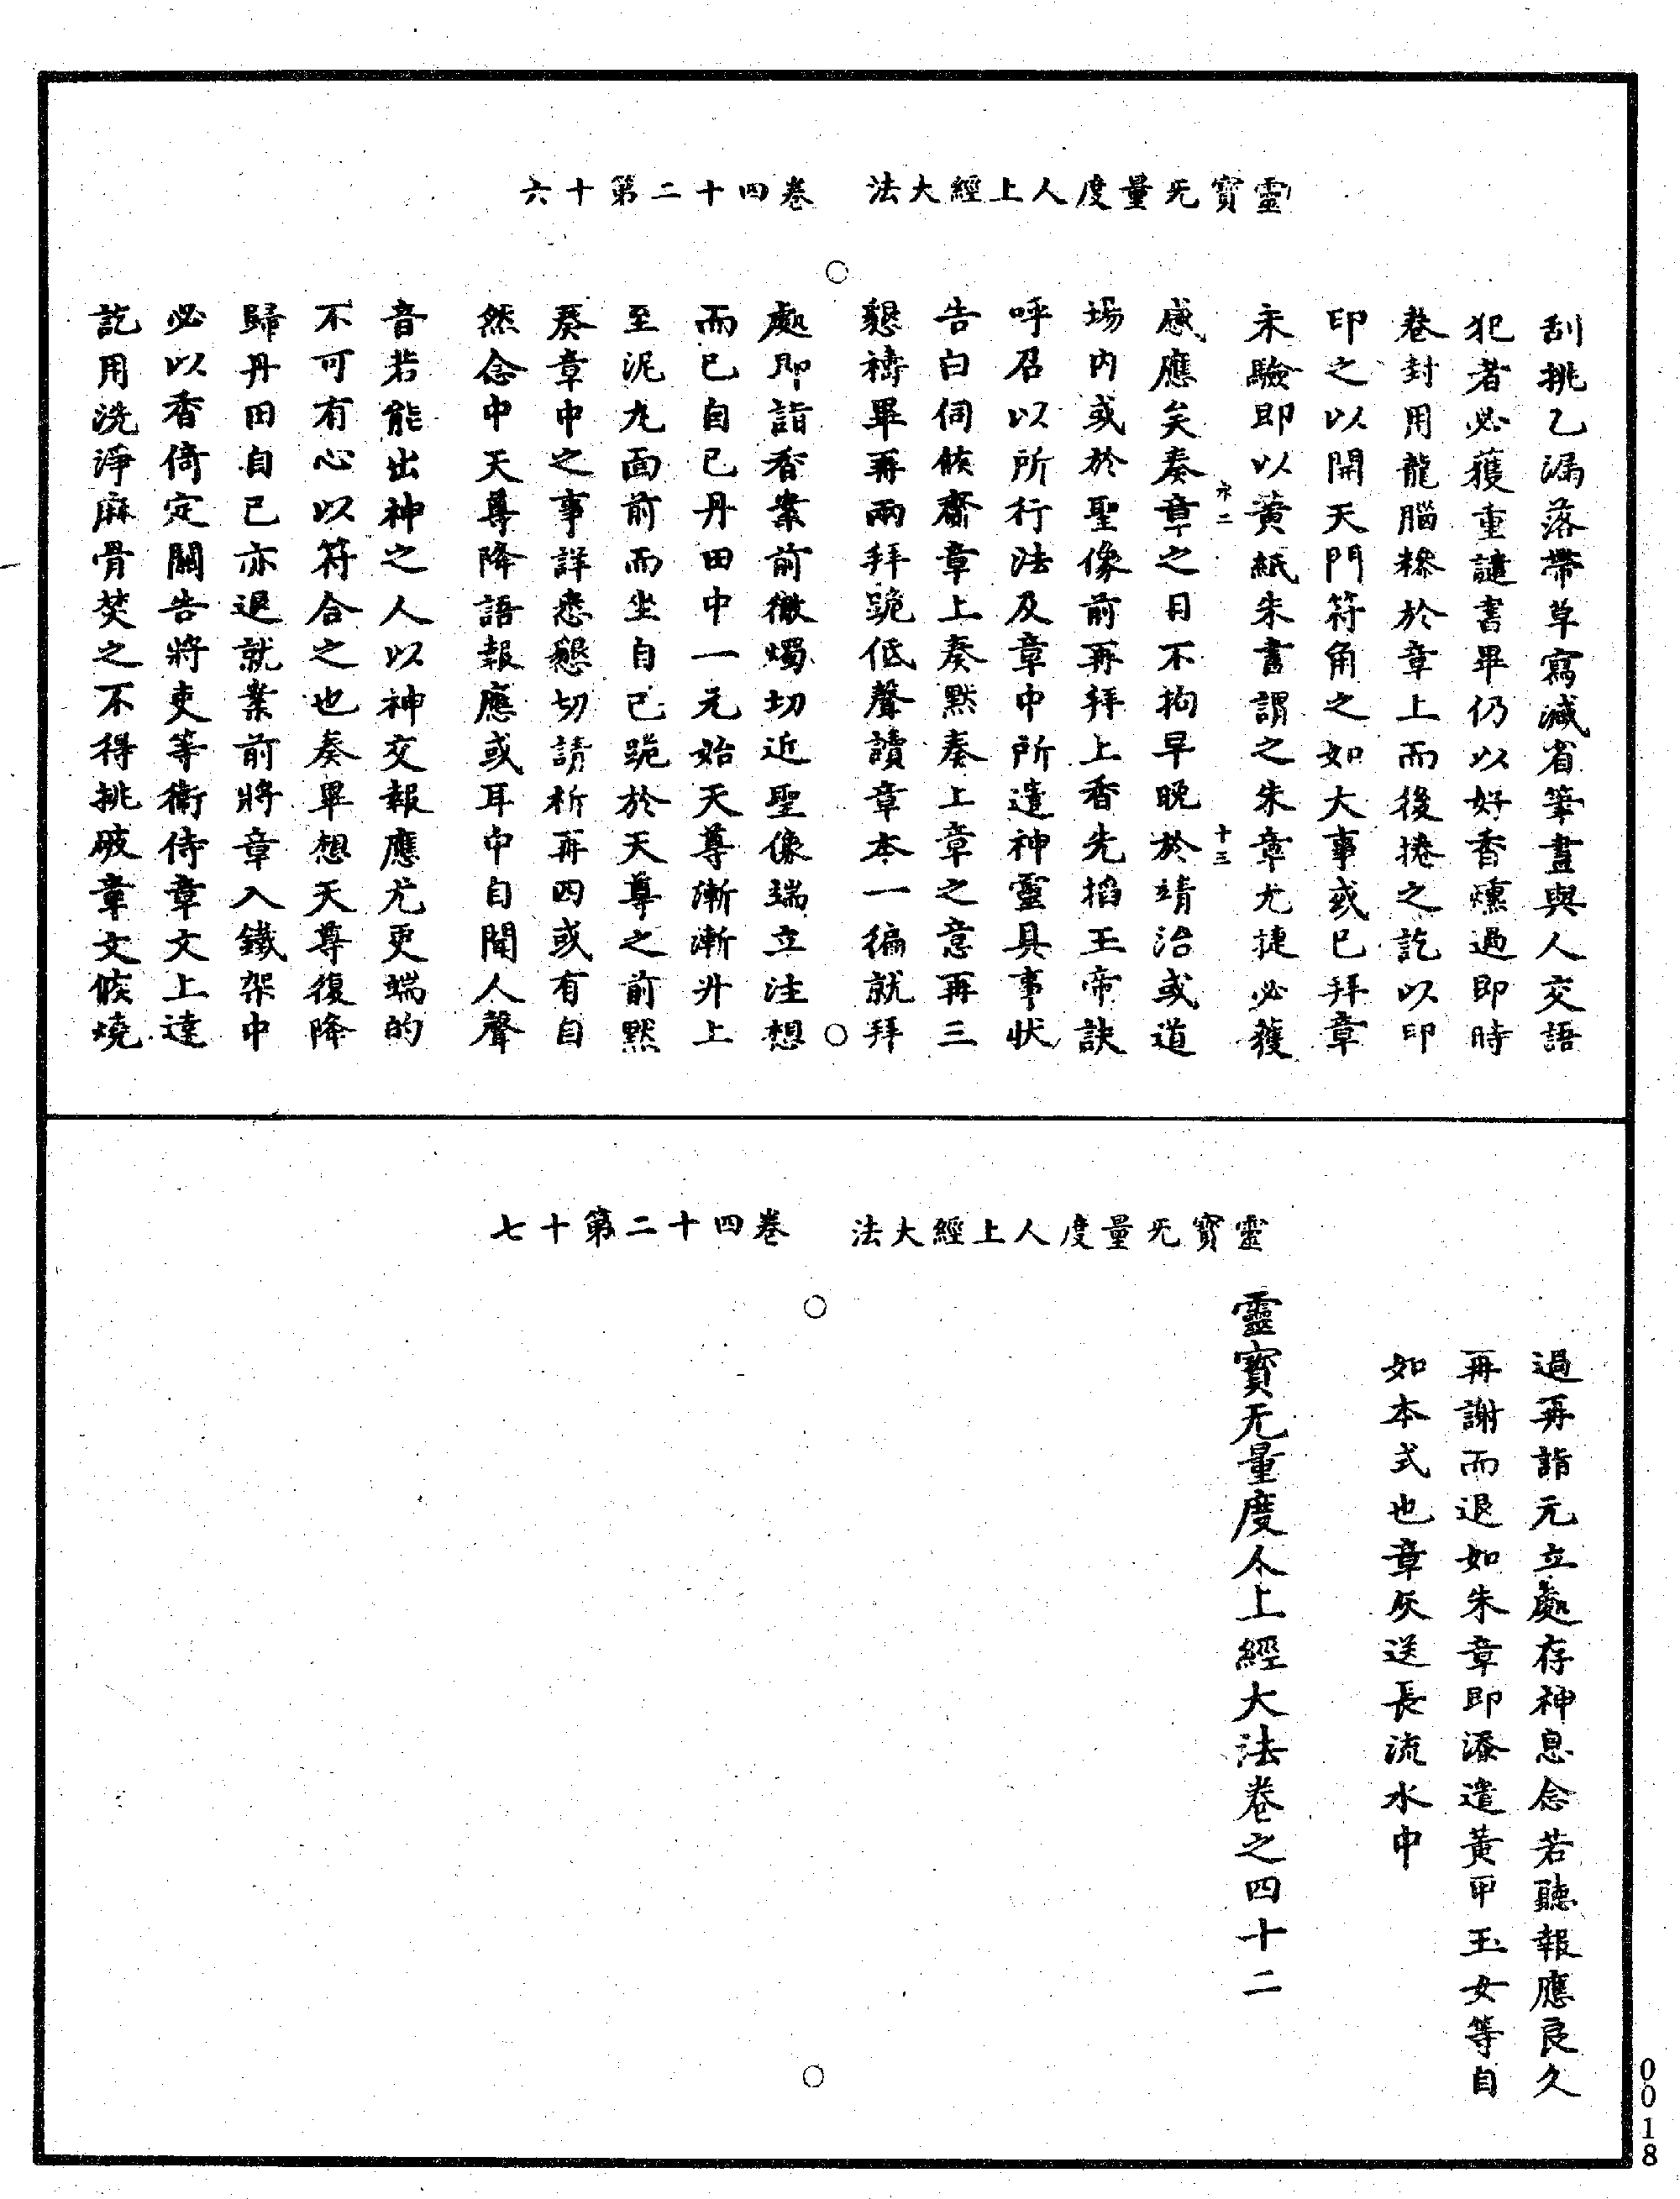 靈寶旡量度人上經大法　卷四十二第十六
刮挑乙漏落帶草寫減省筆畫與人交語
犯者必獲重譴書畢仍以好香燻過即時
卷封用龍腦糝於章上而後捲之訖以印
印之以開天門符角之如大事或已拜章
未驗即以黃紙朱書謂之朱章尤捷必獲
木二　十三
感應矣奏章之日不拘早晚於靖治或道
場內或於聖像前再拜上香先掐王帝訣
呼召以所行法及章中所遣神靈具事狀
告白伺候齋章上奏默奏上章之意再三
懇禱畢再兩拜跪低聲讀章本一徧就拜
處即詣香案前徹燭切近聖像端立注想
而已自己丹田中一元始天尊漸漸升上
至泥丸面前而坐自己跪於天尊之前黙
奏章中之事詳悉懇切請祈再四或有自
然念中天尊降語報應或耳中自聞人聲
音若能出神之人以神交報應尤更端的
不可有心以符合之也奏畢想天尊復降
歸丹田自己亦退就案前將章入鐵架中
必以香倚定關告將吏等衛侍章文上達
訖用洗淨麻骨焚之不得挑破章文候燒
靈寶旡量度人上經大法　卷四十二第十七
過再詣元立處存神息念若聽報應良久
再謝而退如朱章即添遣黃甲玉女等自
如本式也章灰送長流水中
靈寶旡量度人上經大法卷之四十二
0018